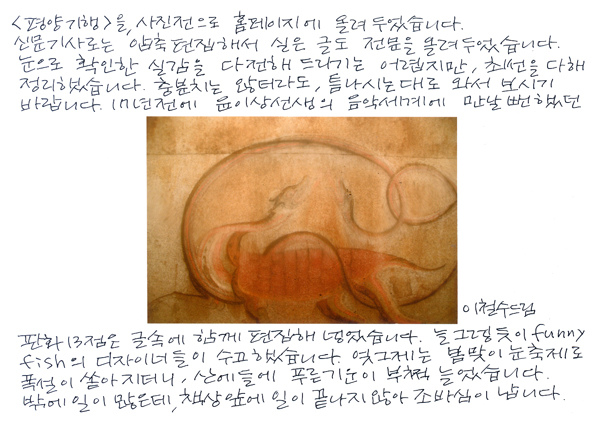 <평양기행>을, 사진전으로 홈페이지에 올려 두었습니다.
신문기사로는 압축편집해서 실은 글도 전문을 올려두었습니다.
눈으로 확인한 실감을 다 전해 드리기는 어렵지만, 최선을 다해
정리했습니다. 충분치는 않더라도, 틈나시는대로 와서 보시기
바랍니다. 17년전에 윤이상선생의 음악세계에 만날뻔했던
이철수드림
판화 13점은 글속에 함께 편집해 넣었습니다. 늘 그렇듯이 funny
fish의 디자이너들이 수고했습니다. 엊그제는 봄맞이 눈축제로
폭설이 쏟아지더니, 산에들에 푸른기운이 부쩍 늘었습니다.
밖에 일이 많은데, 책상앞에 일이 끝나지 않아 조바심이 납니다.